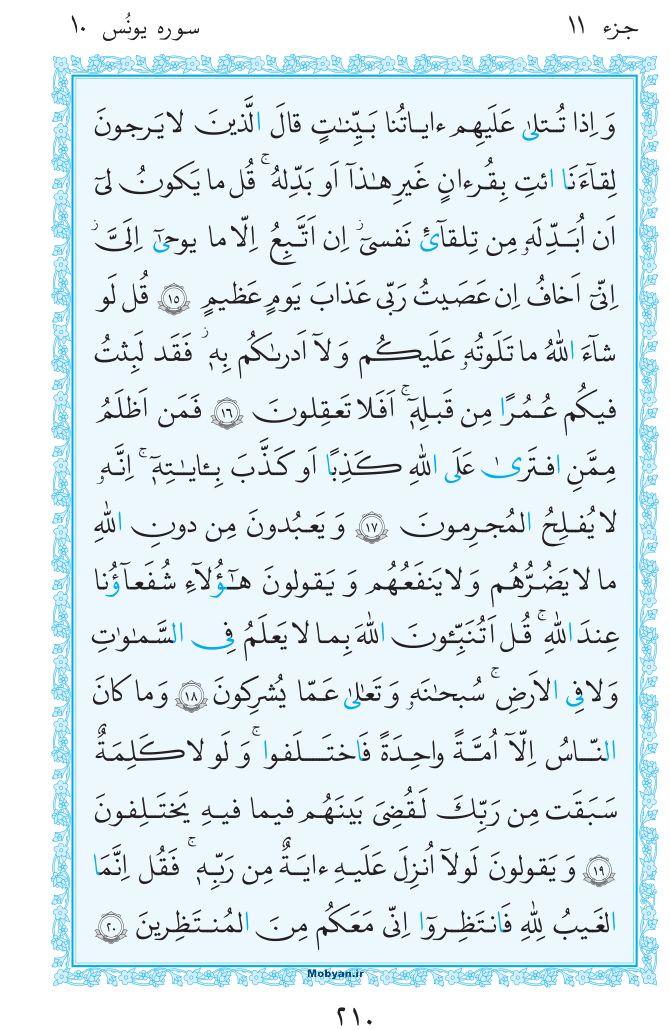 جزء ۱۱
سوره یونُس ۱۰
وَ اِذا تُـتلیٰ عَلَیهِم ءایـاتُنا بَـیِّنـٰتٍ قالَ الَّذینَ لا یَـرجونَ
لِقآءَنَا ائتِ بِقُـرءانٍ غَیرِ هـٰذآ اَو بَدِّلهُ ۚ قُل ما یَکونُ لیٓ
اَن اُبَـدِّلَه‌و مِن تِلقآئِ نَفسیٓ ۖ اِن اَتَّـبِعُ اِلّا ما یوحیٰٓ اِلَیَّ ۖ
اِنّیٓ اَخافُ اِن عَصَیتُ رَبّی عَذابَ یَومٍ عَظیمٍ ﴿۱۵﴾ قُل لَو
شآءَ اللهُ ما تَلَوتُه‌و عَلَیکُم وَ لآ اَدرىٰکُم بِه‌ی ۖ فَقَد لَبِثتُ
فیکُم عُـمُرًا مِن قَبلِه‌ٓی ۚ اَفَلا تَعقِلونَ ﴿۱۶﴾ فَمَن اَظلَمُ
مِمَّنِ افتَرىٰ عَلَی اللهِ کَذِبًا اَو کَذَّبَ بِـئایـٰتِه‌ٓی ۚ اِنَّه‌و
لا یُفـلِحُ المُجـرِمونَ ﴿۱۷﴾ وَ یَعبُدونَ مِن دونِ اللهِ
ما لا یَضُرُّهُم وَ لا یَنفَعُهُم وَ یَـقولونَ هـٰٓـؤُلآءِ شُفَعآؤُنا
عِندَ اللهِ ۚ قُـل اَتُنَبِّـئونَ اللهَ بِمـا لا یَعلَمُ فِی السَّمـٰوٰتِ
وَ لا فِی الاَرضِ ۚ سُبحـٰنَه‌و وَ تَعٰلیٰ عَمّا یُشرِکونَ ﴿۱۸﴾ وَ ما کانَ
النّـاسُ اِلّآ اُمَّـةً واحِـدَةً فَاختَـلَفوا ۚ وَ لَو لا کَـلِمَـةٌ
سَـبَقَت مِن رَبِّکَ لَـقُضِیَ بَینَهُم فیما فیـهِ یَختَـلِفونَ
﴿۱۹﴾ وَ یَقولونَ لَولآ اُنزِلَ عَلَیـهِ ءایَـةٌ مِن رَبِّـه‌ی ۚ فَقُل اِنَّمَا
الغَـیبُ لِلّٰهِ فَانتَظِـروٓا اِنّی مَعَکُم مِـنَ المُنـتَظِـرینَ ﴿۲۰﴾
Mobyan.ir
۲۱۰